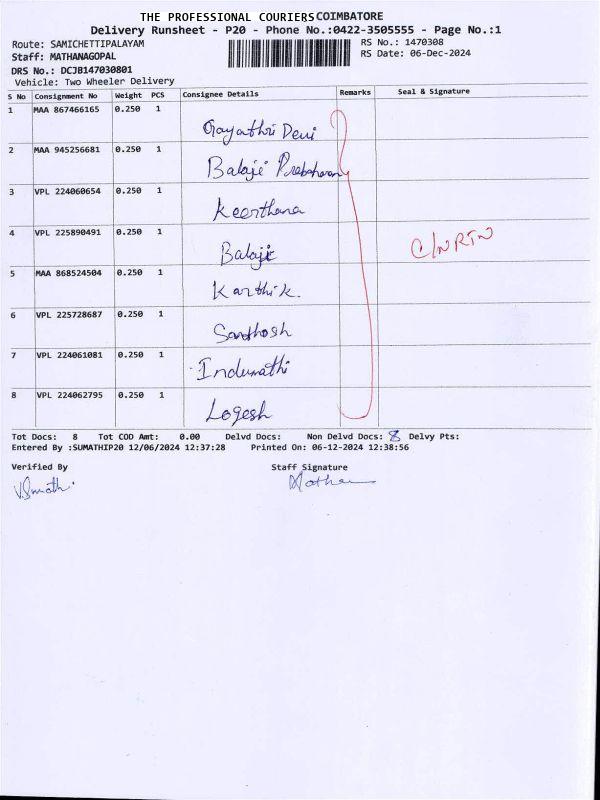 THE PROFESSIONAL COURIERS COIMBATORE
Delivery Runsheet - P20 - Phone No.:0422-3505555 - Page No.:1
Route: SAMICHETTIPALAYAM
RS No.: 1470308
Staff: MATHANAGOPAL
RS Date: 06-Dec-2024
DRS No.: DCJB147030801
Vehicle: Two Wheeler Delivery
S No Consignment No Weight PCS Consignee Details Remarks Seal & Signature
1 MAA 867466165 0.250 1 Gayathri Devi
2 MAA 945256681 0.250 1 Balaji Prabaharan
3 VPL 224060654 0.250 1 Keerthana
4 VPL 225890491 0.250 1 Balaji C/N RTN
5 MAA 868524504 0.250 1 Karthik.
6 VPL 225728687 0.250 1 Santhosh
7 VPL 224061081 0.250 1 Indumathi
8 VPL 224062795 0.250 1 Logesh
Tot Docs: 8 Tot COD Amt: 0.00 Delvd Docs: Non Delvd Docs: 8 Delvy Pts:
Entered By :SUMATHIP20 12/06/2024 12:37:28 Printed On: 06-12-2024 12:38:56
Verified By Staff Signature